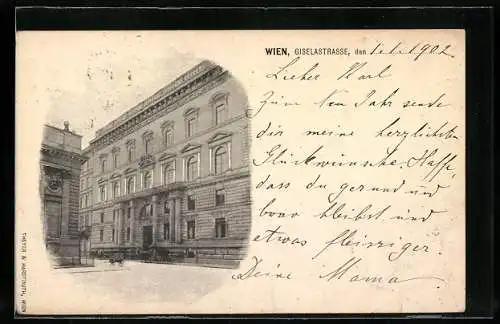 WIEN, GISELASTRASSE, den 1.1.1902
Lieber Karl
Zum Neu Jahr sende
dir meine herzlichsten
Glückwünsche. Hoffe
dass du gesund und
brav bleibst und
etwas fleissiger.
Deine Mama
THEYER & HARDTMUTH, WIEN